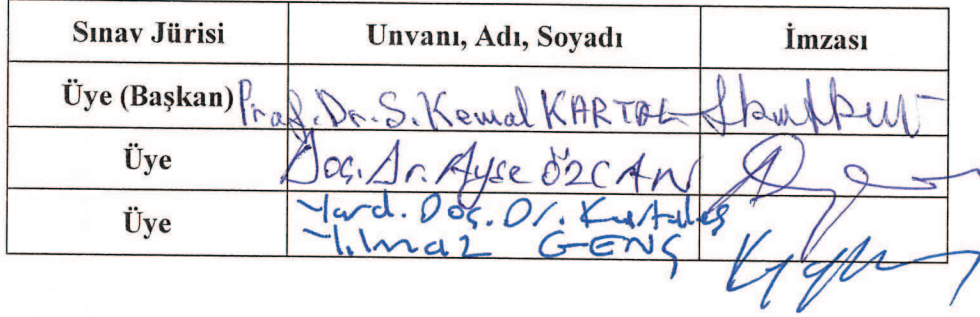 Sınav Jürisi Unvanı, Adı, Soyadı İmzası
Üye (Başkan) Prof. Dr. S. Kemal KARTAL
Üye Doç. Dr. Ayşe ÖZCAN
Üye Yard. Doç. Dr. Kurtuluş
Yılmaz GENÇ